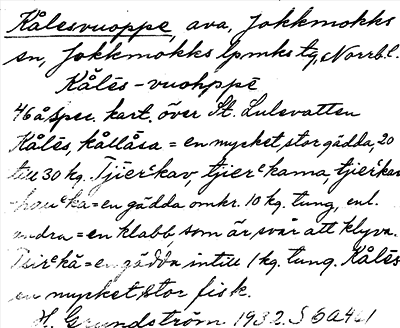 Kålesvuoppe, ava, Jokkmokks
sn, Jokkmokks lpmks tg, Norrb. l.
Kålēs-vuohppē
46 å Spec. kart. över St. Lulevatten
Kålēs, kållåsa = en mycket stor gädda, 20
till 30 kg. Tjierᵋkav, tjierᵋkama, tjierᵋkav
= en gädda omkr. 10 kg. tung, enl.
andra = en klabb, som är svår att klyva.
= en gädda intill 1 kg. tung. Kålēs
en mycket stor fisk.
H. Grundström 1932. S 3a461